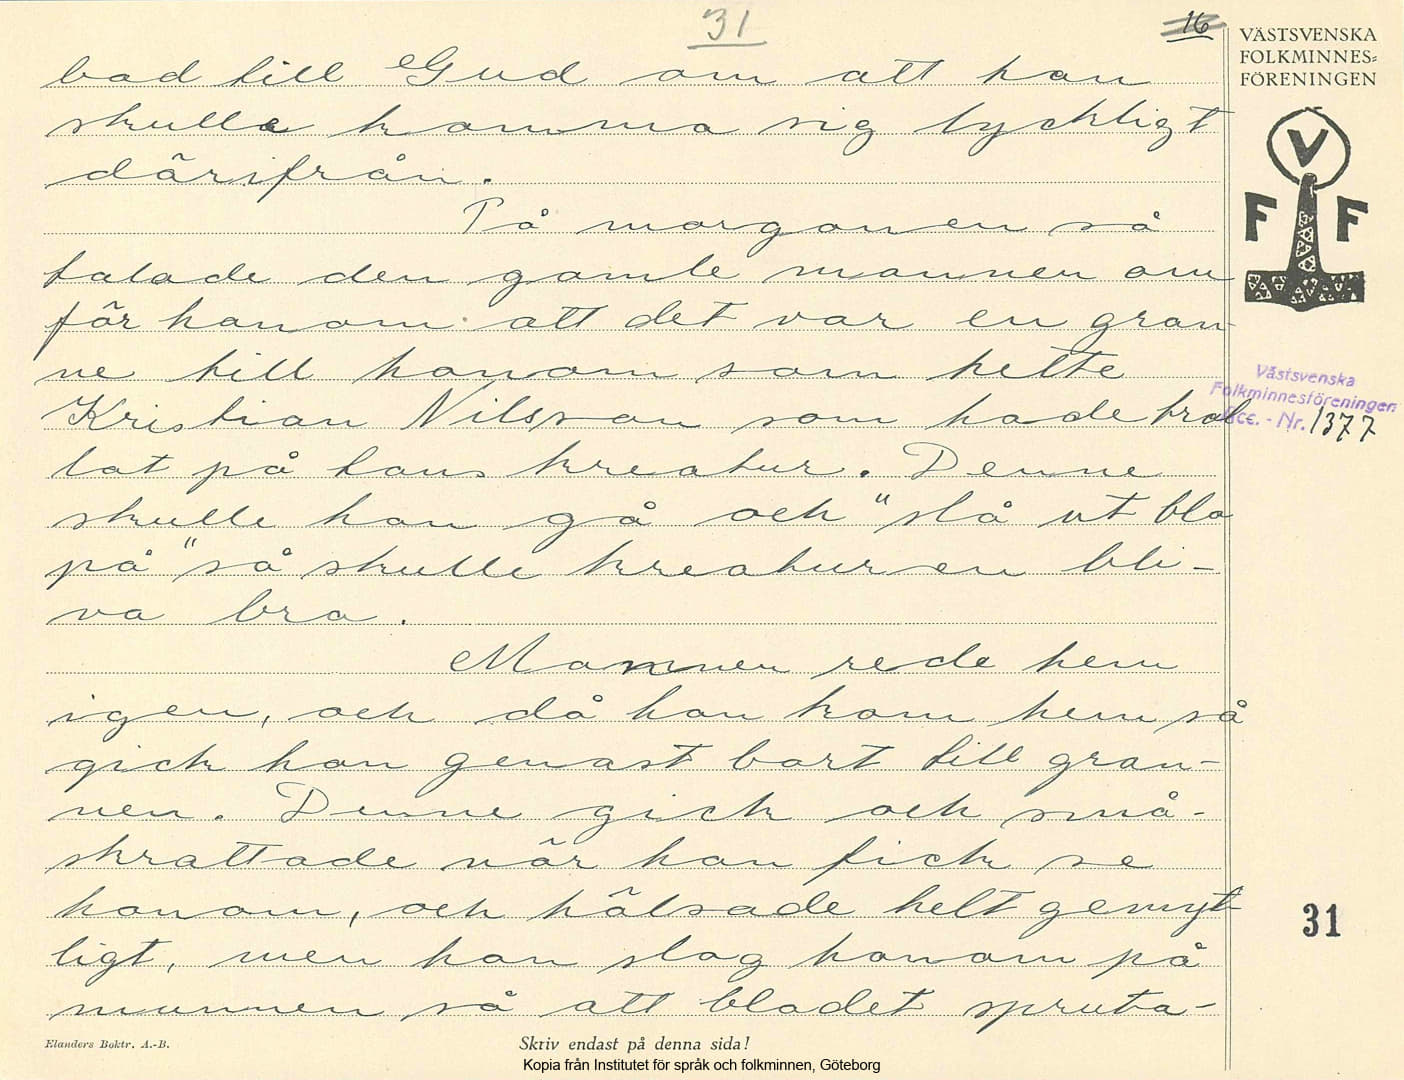 31
16
VÄSTSVENSKA
FOLKMINNES=
FÖRENINGEN
V
F F
bad till Gud om att han
skulle komma sig lyckligt
därifrån.
På morgonen så
talade den gamle mannen om
för honom att det var en gran-
ne till honom som hette
Kristian Nilsson som hade trol
lat på hans kreatur. Denne
skulle han gå och "slå ut blo
på" så skulle kreaturen bli-
va bra.
Mannen rede hem
igen, och då han kom hem så
gick han genast bort till gran-
nen. Denne gick och små-
skrattade när han fick se
honom, och hälsade helt gemyt-
ligt, men han slog honom på
munnen så att blodet spruta-
Västsvenska
Folkminnesföreningen
Acc. - Nr. 1377
31
Elanders Boktr. A.-B.
Skriv endast på denna sida!
Kopia från Institutet för språk och folkminnen, Göteborg